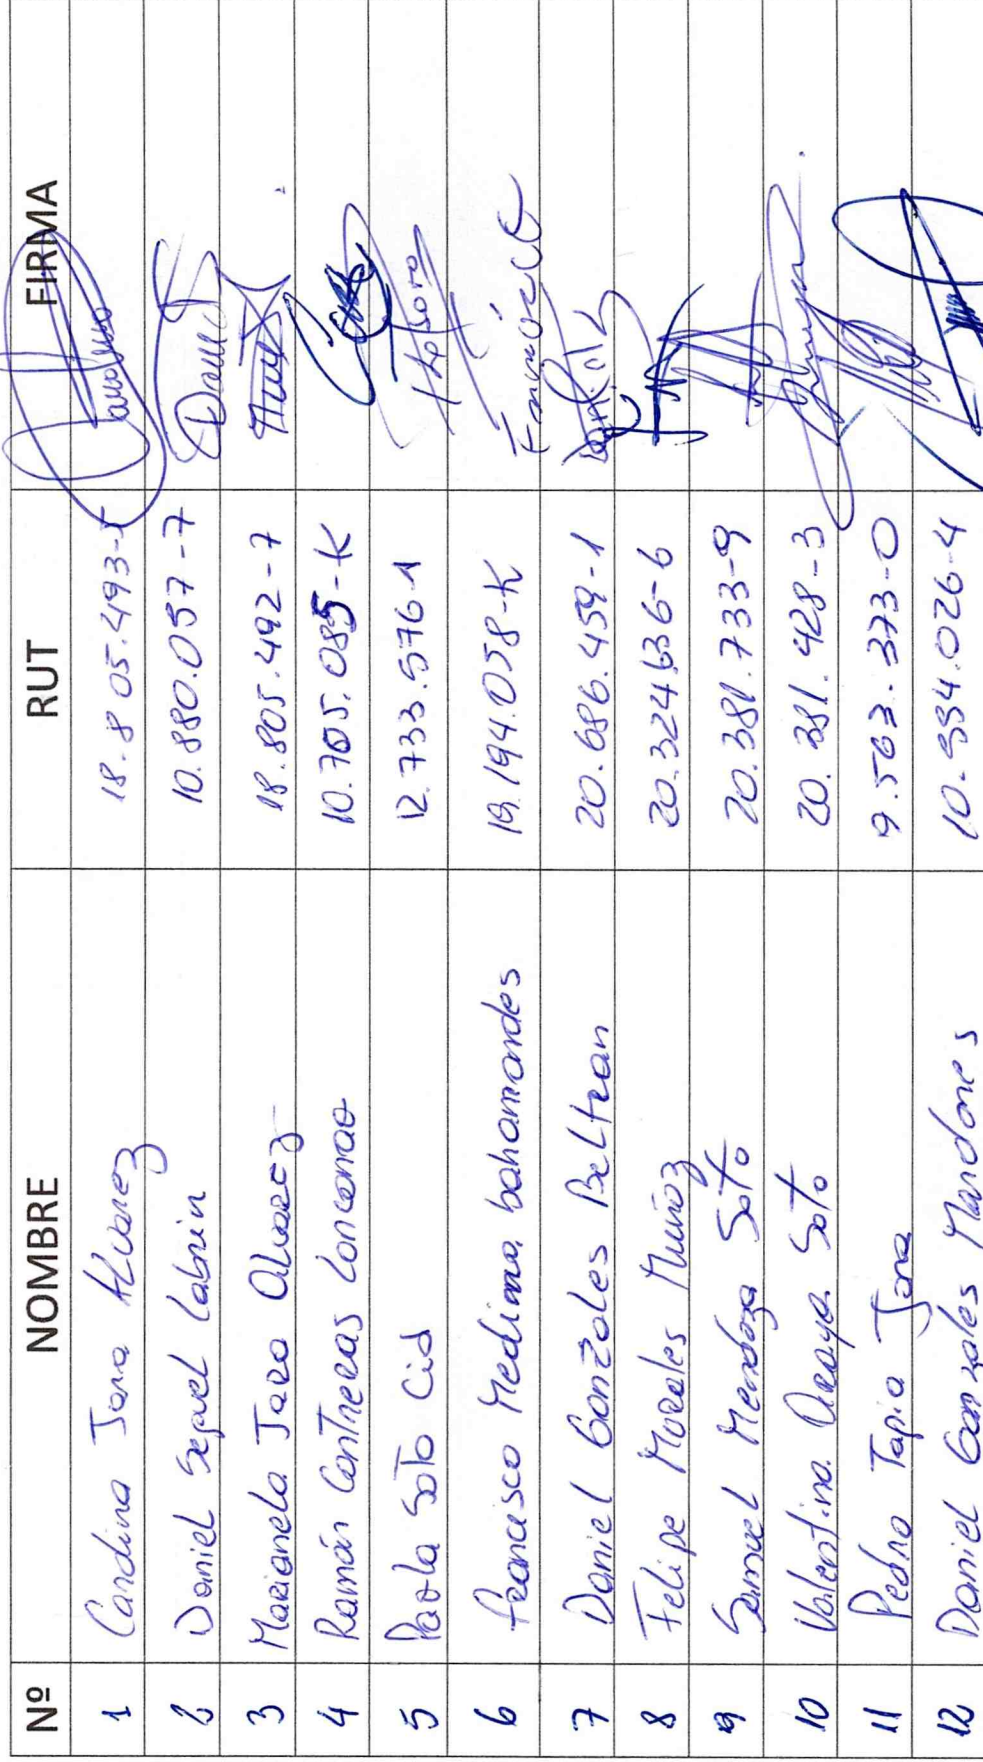 Nº NOMBRE RUT FIRMA
1 Carolina Jara Alvarez 18.805.493-5
2 Daniel Seguel Labrin 10.880.057-7
3 Marianela Jara Alvarez 18.805.492-7
4 Ramón Contreras Loncomao 10.705.085-K
5 Paola Soto Cid 12.733.576-1 Ptosoro
6 francisco Medina bahamondes 19.194.058-K Francisco
7 Daniel Gonzales Beltran 20.686.459-1
8 Felipe Morales Muñoz 20.324.636-6
9 Samuel Mendoza Soto 20.381.733-9
10 Valentina Araya Soto 20.381.428-3
11 Pedro Tapia Jara 9.563.373-0
12 Daniel Gonzales Mardones 10.994.026-4